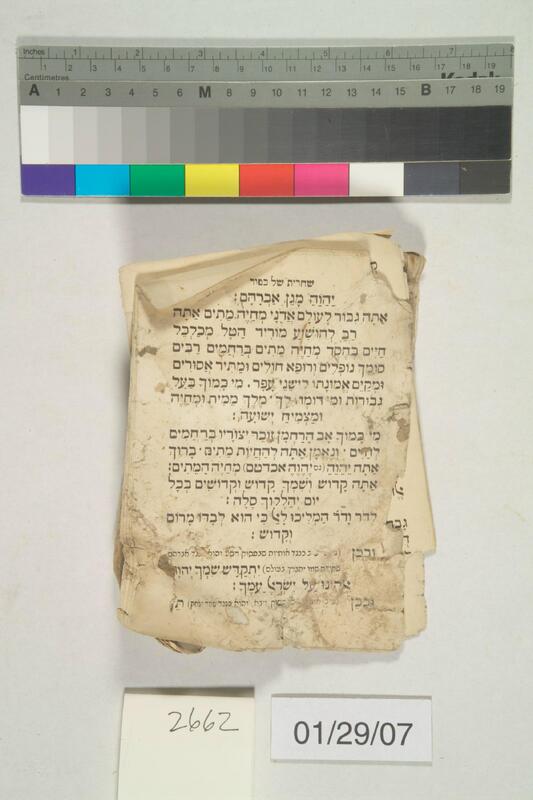 Inches 1 2 3 4 5 6 7 8
Centimetres 1 2 3 4 5 6 7 8 9 10 11 12 13 14 15 16 17 18 19
Kodak
A 1 2 3 4 5 6 M 8 9 10 11 12 13 14 15 B 17 18 19
שחרית של כפור
יְהֹוָה מָגֵן אַבְרָהָם:
אַתָּה גִבּוֹר לְעוֹלָם אֲדֹנָי מְחַיֵּה מֵתִים אַתָּה
רַב לְהוֹשִׁיעַ מוֹרִיד הַטָּל מְכַלְכֵּל
חַיִּים בְּחֶסֶד מְחַיֵּה מֵתִים בְּרַחֲמִים רַבִּים
סוֹמֵךְ נוֹפְלִים וְרוֹפֵא חוֹלִים וּמַתִּיר אֲסוּרִים
וּמְקַיֵּם אֱמוּנָתוֹ לִישֵׁנֵי עָפָר. מִי כָמוֹךָ בַּעַל
גְּבוּרוֹת וּמִי דּוֹמֶה לָּךְ מֶלֶךְ מֵמִית וּמְחַיֶּה
וּמַצְמִיחַ יְשׁוּעָה:
מִי כָמוֹךָ אָב הָרַחְמָן זוֹכֵר יְצוּרָיו בְּרַחֲמִים
לְחַיִּים וְנֶאֱמָן אַתָּה לְהַחֲיוֹת מֵתִים בָּרוּךְ
אַתָּה יְהֹוָה יְהֹוָה אכדטם) מְחַיֵּה הַמֵּתִים:
אַתָּה קָדוֹשׁ וְשִׁמְךָ קָדוֹשׁ וּקְדוֹשִׁים בְּכָל
יוֹם יְהַלְלוּךָ סֶּלָה:
לְדֹר וָדֹר הַמְלִיכוּ לָאֵל כִּי הוּא לְבַדּוֹ מָרוֹם
וְקָדוֹשׁ:
וּבְכֵן כנגד אותיות
יִתְקַדֵּשׁ שִׁמְךָ יְהֹוָה
אֱלֹהֵינוּ עַל יִשְׂרָאֵל עַמֶּךָ:
וּבְכֵן
2662
01/29/07